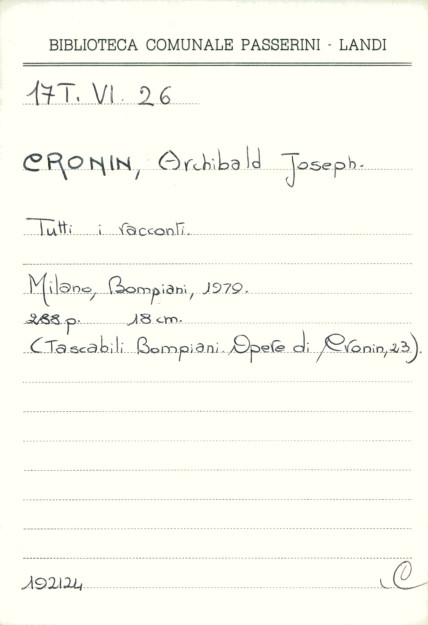 BIBLIOTECA COMUNALE PASSERINI - LANDI
17T. VI. 26
CRONIN, Archibald Joseph.
Tutti i racconti.
Milano, Bompiani, 1979.
288 p. 18 cm.
(Tascabili Bompiani. Opere di Cronin, 23).
192124
C